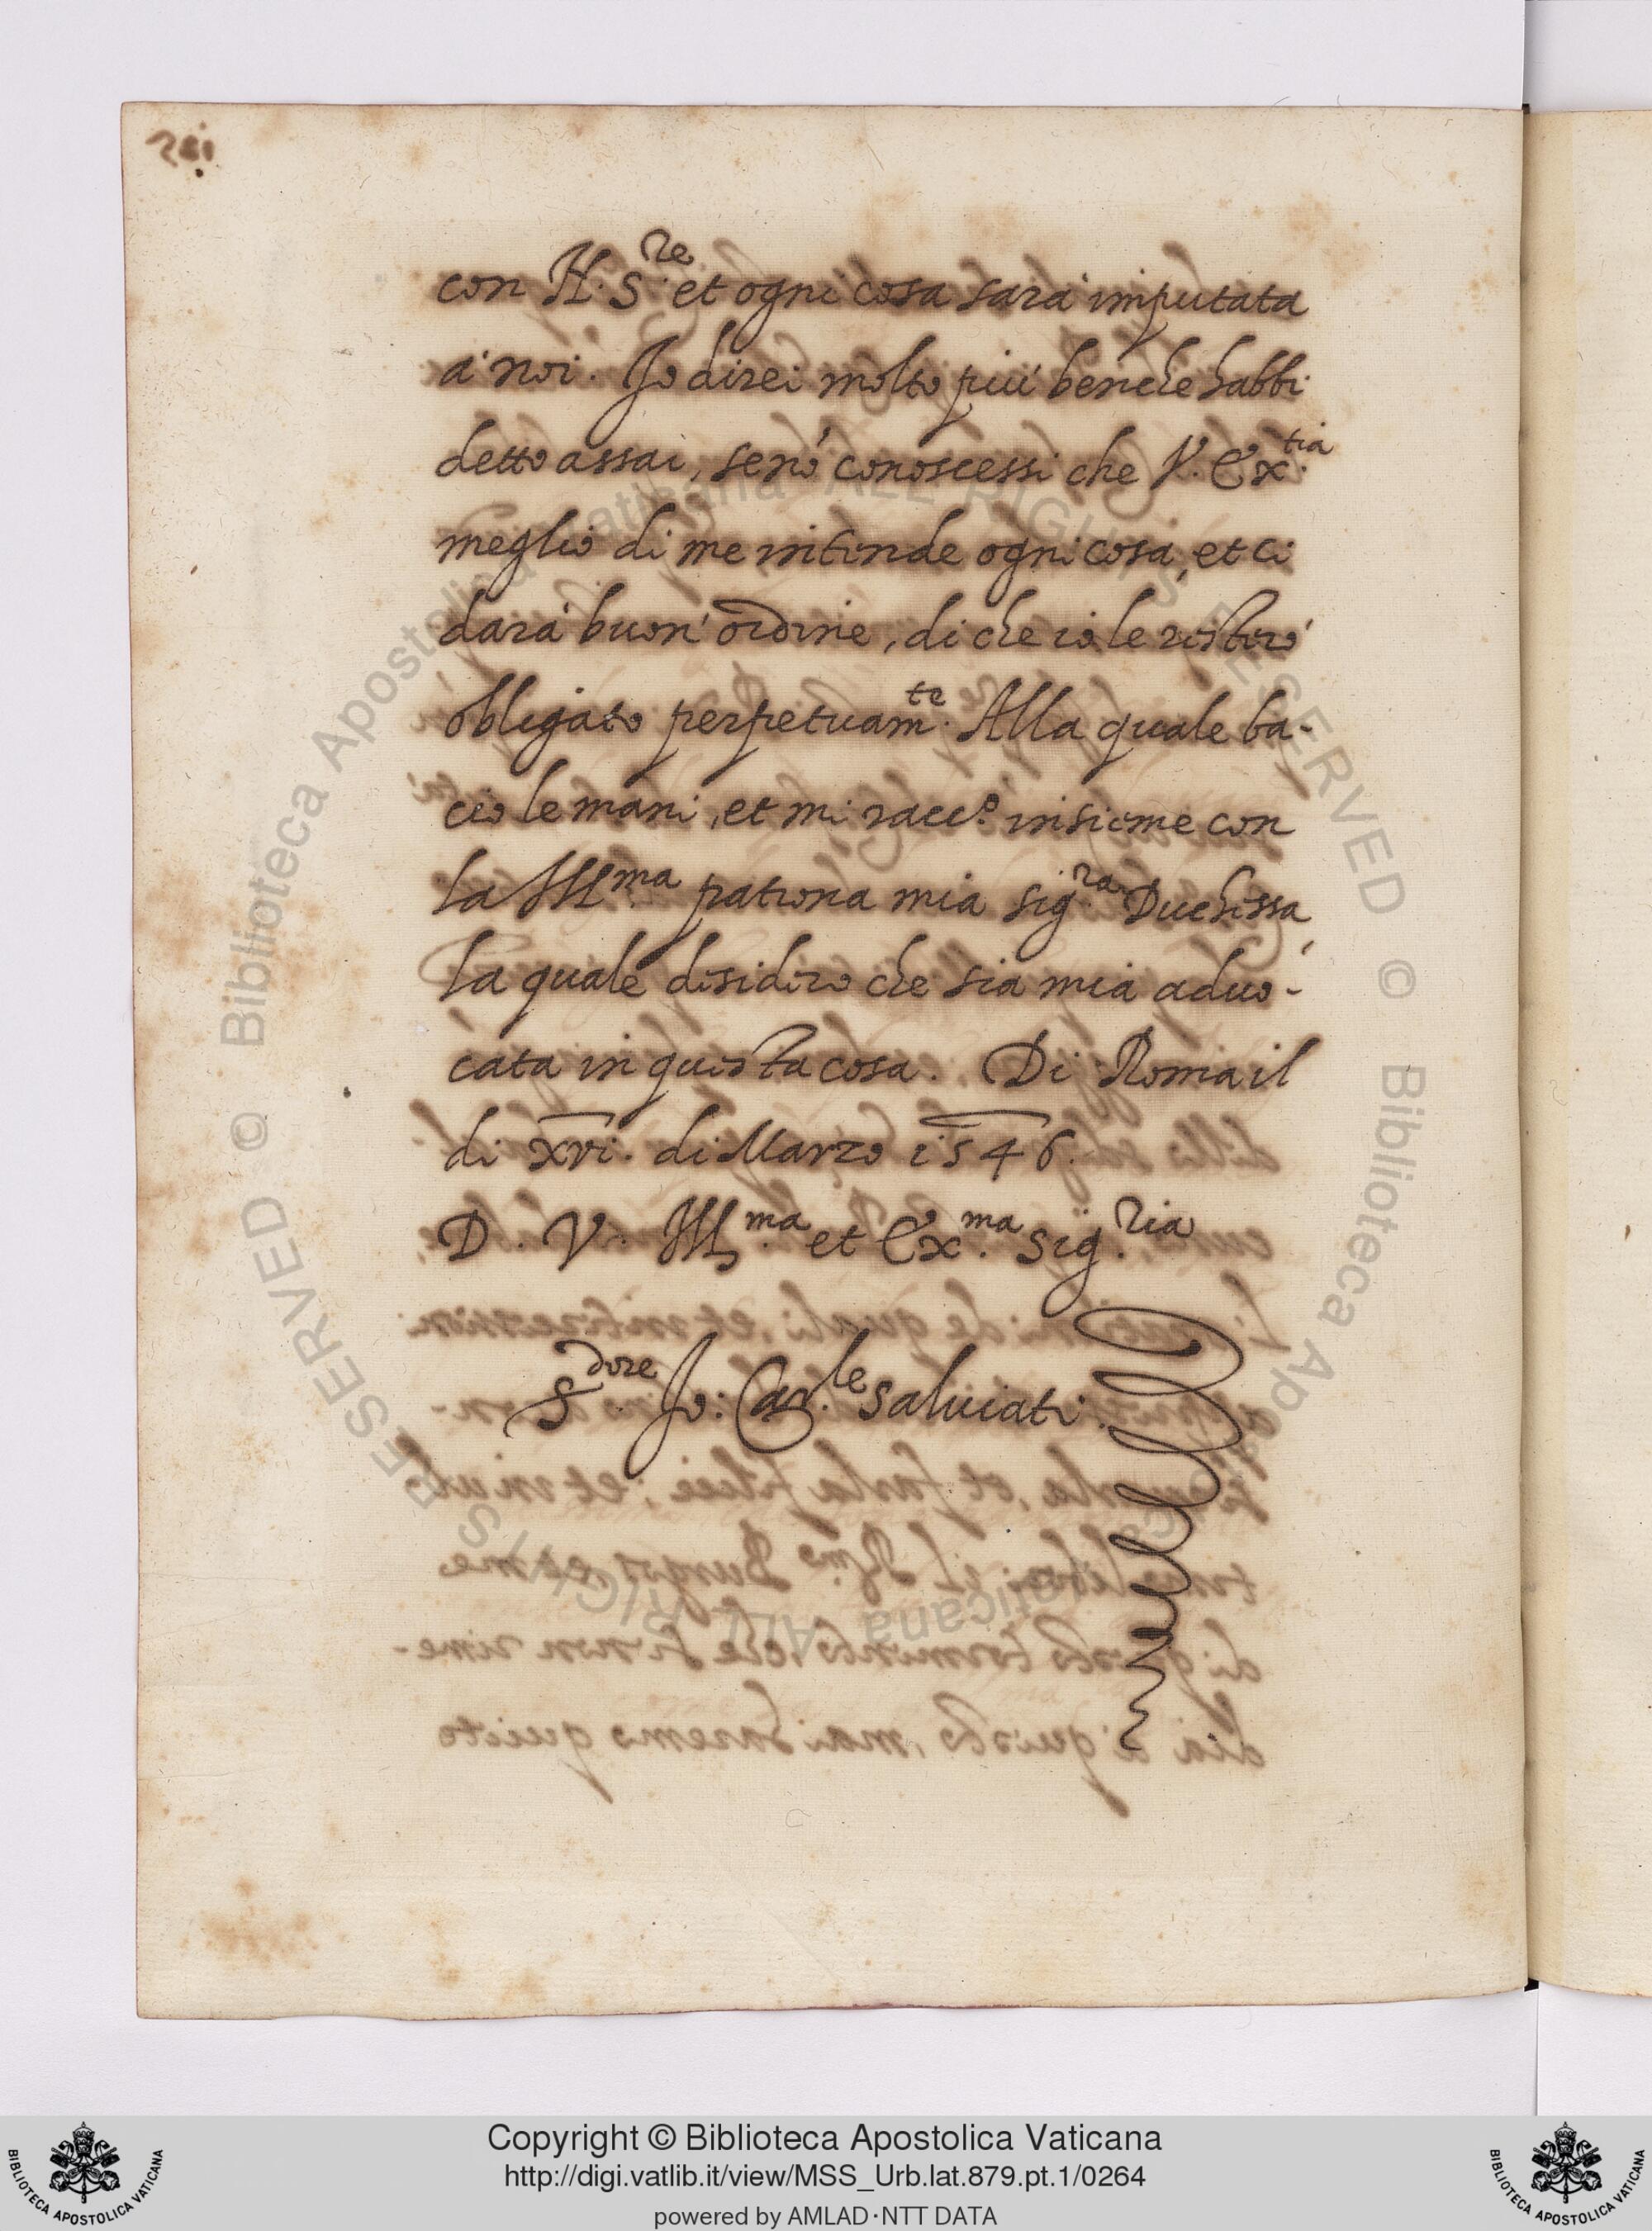 con N. S.re et ogni cosa sarà imputata
à noi. Io direi molto più benche habbi
detto assai, senò conoscessi che V. Ex.tia
meglio di me intende ogni cosa, et ci
darà buon' ordine, di che io le resterò
obligato perpetuam.te Alla quale ba-
cio le mani, et mi racc.o insieme con
la Ill.ma patrona mia sig.ra Duchessa
la quale desidero che sia mia aduo-
cata in questa cosa. Di Roma il
di xvi. di Marzo 1546.
D. V. Ill.ma et Ex.ma sig.ria
S.dore Io: Car.le Saluiati.
Copyright © Biblioteca Apostolica Vaticana
http://digi.vatlib.it/view/MSS_Urb.lat.879.pt.1/0264
powered by AMLAD·NTT DATA
BIBLIOTECA APOSTOLICA VATICANA
BIBLIOTECA APOSTOLICA VATICANA